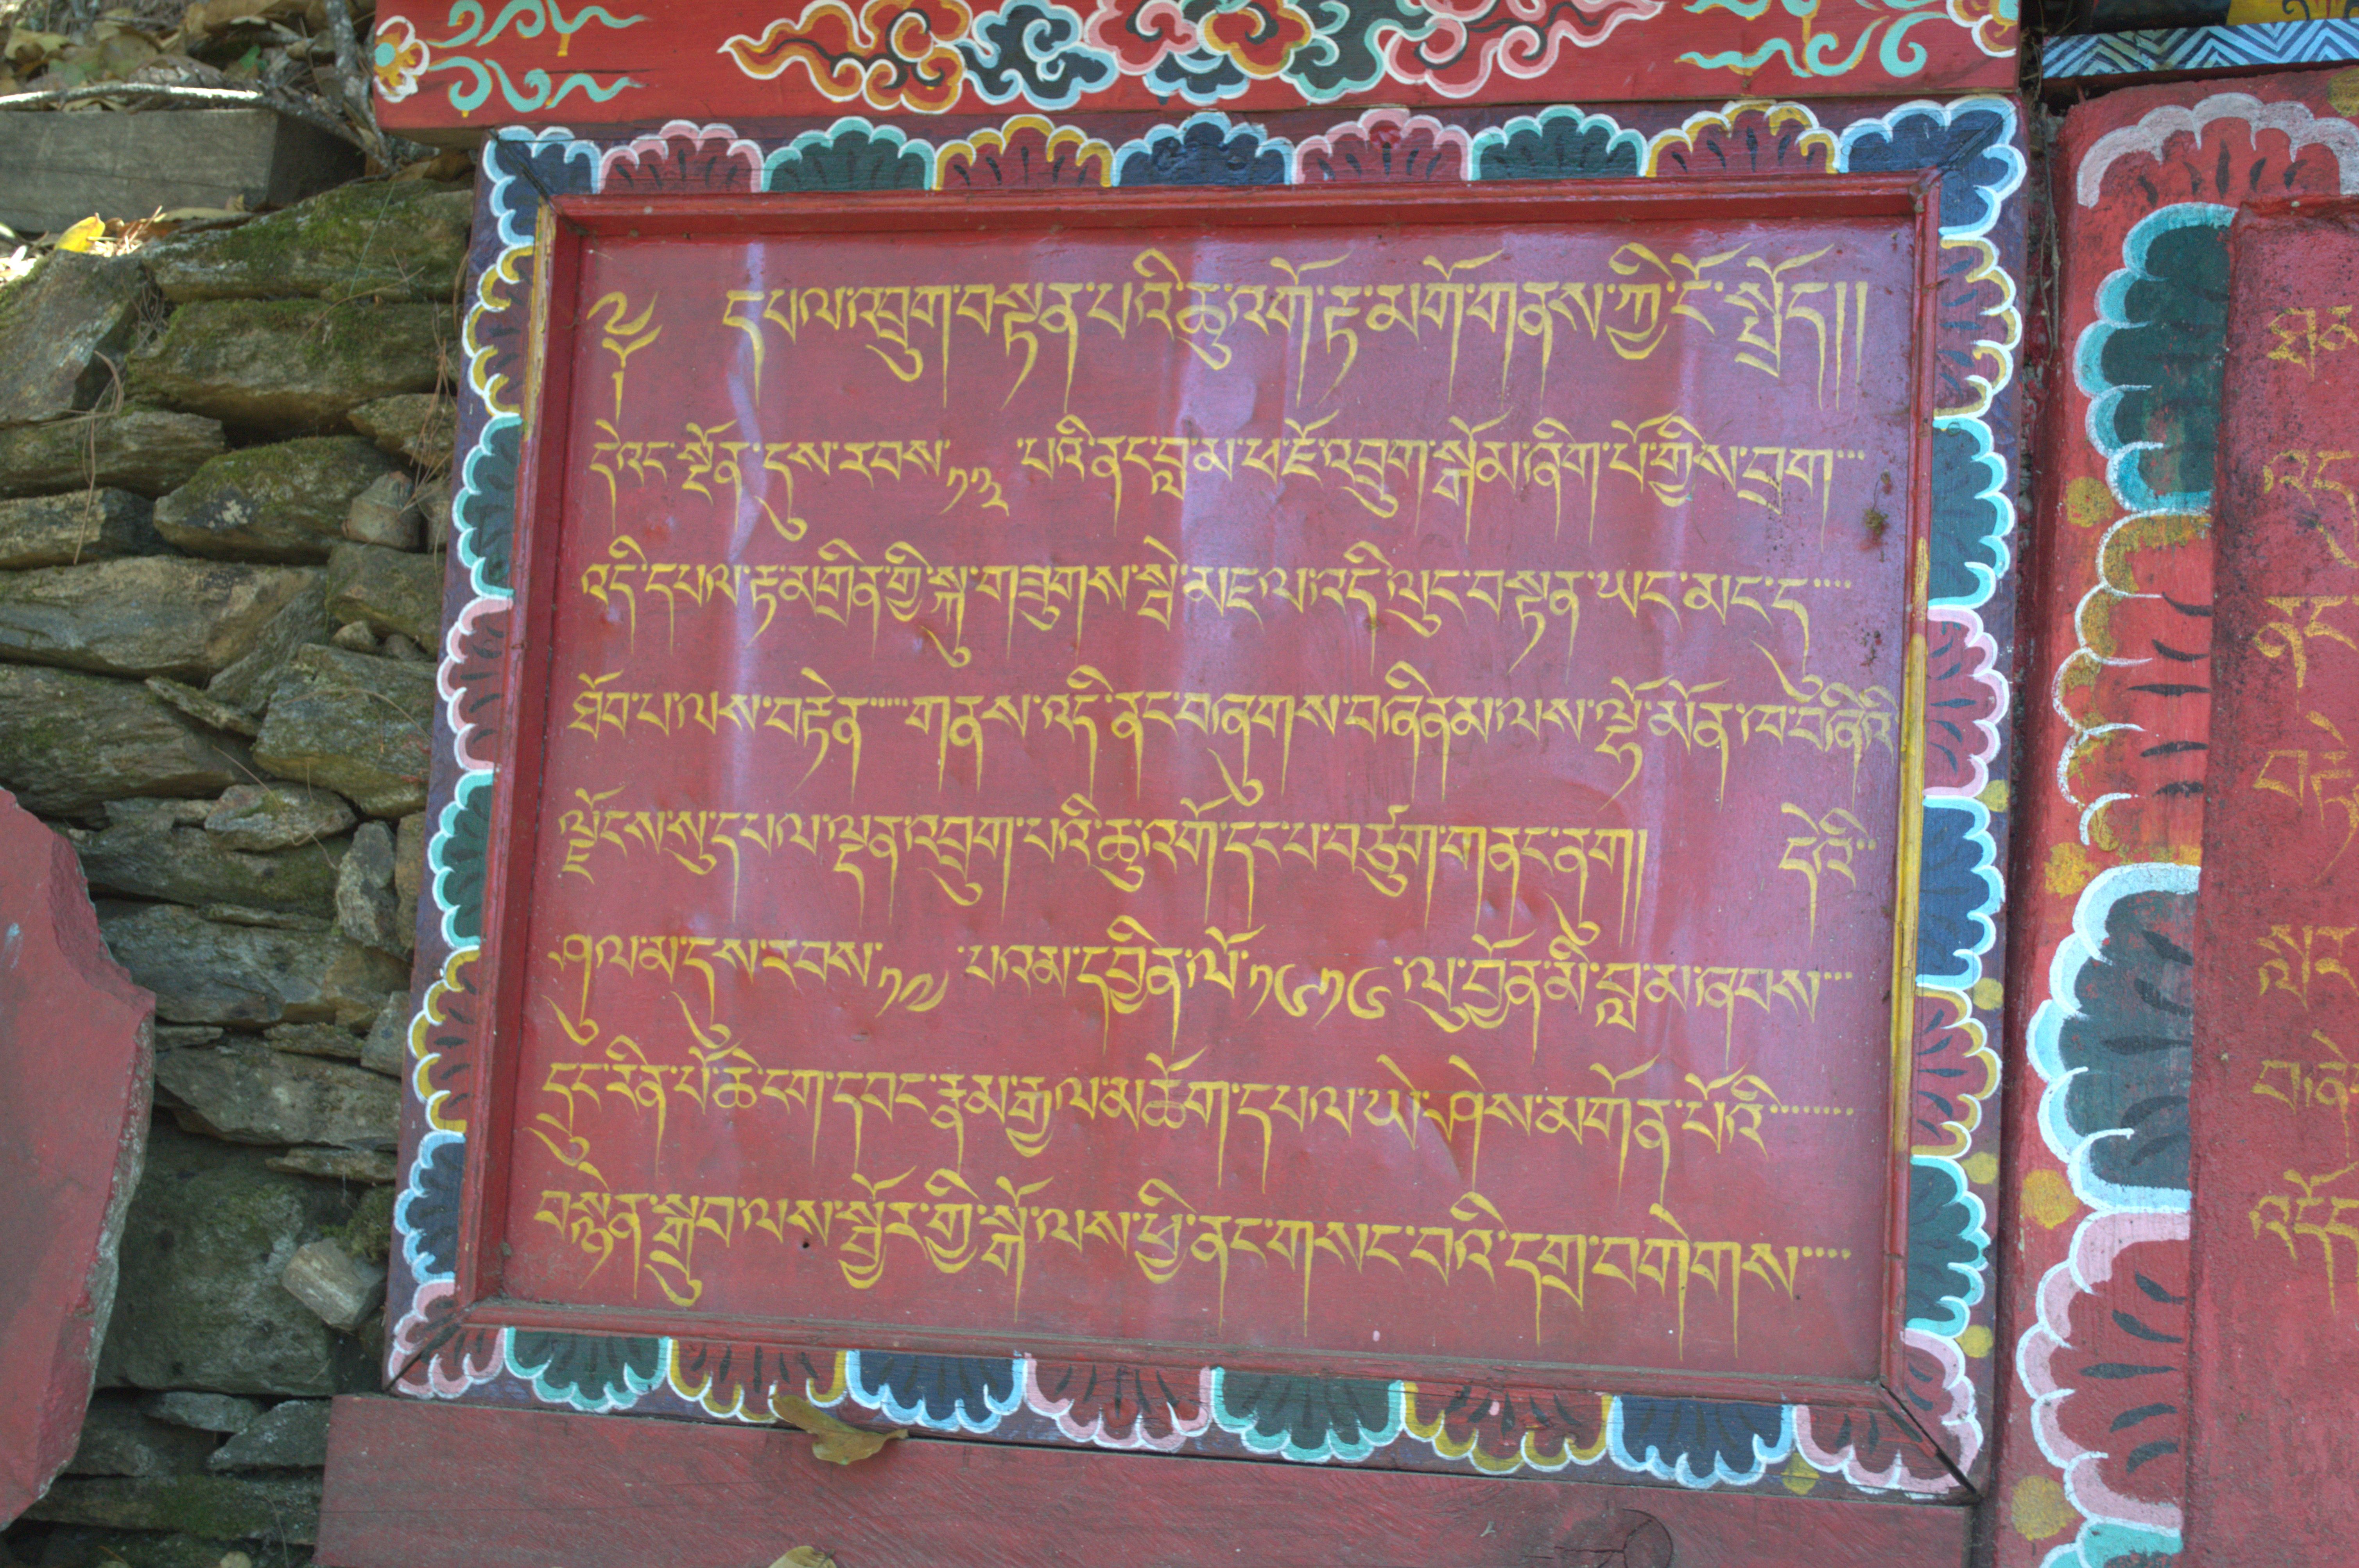 ༄༅ དཔལ་འབྲུག་བསྟན་པའི་ཆུ་འགོ་རྟ་མགོ་གནས་ཀྱི་ངོ་སྤྲོད།།
དེའང་སྔོན་དུས་རབས་༡༢ པའི་ནང་བླ་མ་ཕ་ཇོ་འབྲུག་སྒོམ་ཞིག་པོ་གྱིས་བྲག
འདི་དཔལ་རྟ་མགྲིན་གྱི་སྐུ་གཟུགས་སྦེ་མཇལ་འདི་ལུང་བསྟན་ཡང་མང་ད
ཐོབ་པ་ལས་བརྟེན་གནས་འདི་ནང་བཞུགས་བཞིནམ་ལས་ལྷོ་མོན་ཁ་བཞིའི
ལྗོངས་སུ་དཔལ་ལྡན་འབྲུག་པའི་ཆུ་འགོ་དང་པ་བཙུག་གནང་ནུག།
དེའི
ཤུལ་མ་དུས་རབས་༡༧ པའམ་དབྱིན་ལོ་༡༦༡༦ ལུ་བྱོན་མི་བླ་མ་ཞབས
དྲུང་རིན་པོ་ཆེ་ངག་དབང་རྣམ་རྒྱལ་མཆོག་དཔལ་ཡེ་ཤེས་མགོན་པོའི
བསྙེན་སྒྲུབ་ལས་སྦྱོར་གྱི་སྒོ་ལས་ཕྱི་ནང་གསང་བའི་དགྲ་བགེགས